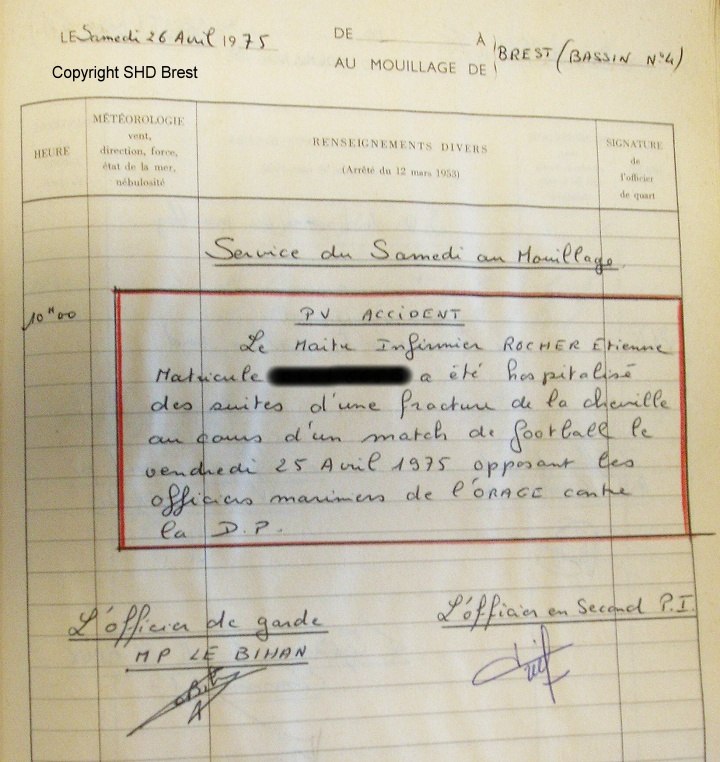 LE Samedi 26 Avril 1975 DE À
AU MOUILLAGE DE BREST (BASSIN N°4)
Copyright SHD Brest
HEURE
MÉTÉOROLOGIE
vent,
direction, force,
état de la mer,
nébulosité
RENSEIGNEMENTS DIVERS
(Arrêté du 12 mars 1953)
SIGNATURE
de
l'officier
de quart
Service du Samedi au Mouillage.
10H00
PV ACCIDENT
Le Maitre Infirmier ROCHER Etienne
Matricule a été hospitalisé
des suites d'une fracture de la cheville
au cours d'un match de football le
vendredi 25 Avril 1975 opposant les
officiers mariniers de l'ORAGE contre
la D.P.
L'officier de garde
MP LE BIHAN
L'officier en Second P.I.